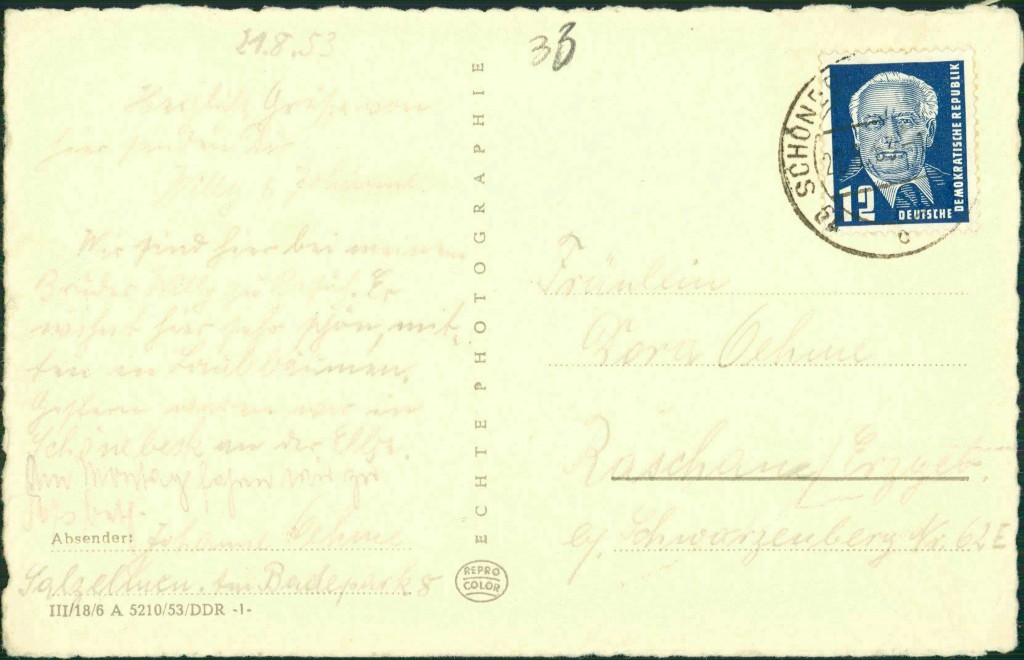 21.8.53
33
Herzliche Grüße von
hier senden Dir
Willy & Johanne.
Wir sind hier bei meinem
Bruder Willy zu Besuch. Er
wohnt hier sehr schön, mit-
ten in Laubbäumen.
Gestern waren wir in
Schönebeck an der Elbe.
Am Montag fahren wir zu
Absender: Johanne Oehme
Salzelmen. Am Badepark 8
III/18/6 A 5210/53/DDR -1-
ECHTE PHOTOGRAPHIE
REPRO
COLOR
SCHÖNE
c
12
DEUTSCHE
DEMOKRATISCHE REPUBLIK
Fräulein
Dora Oehme
Raschau/Erzgeb.
b/ Schwarzenberg Nr. 62E